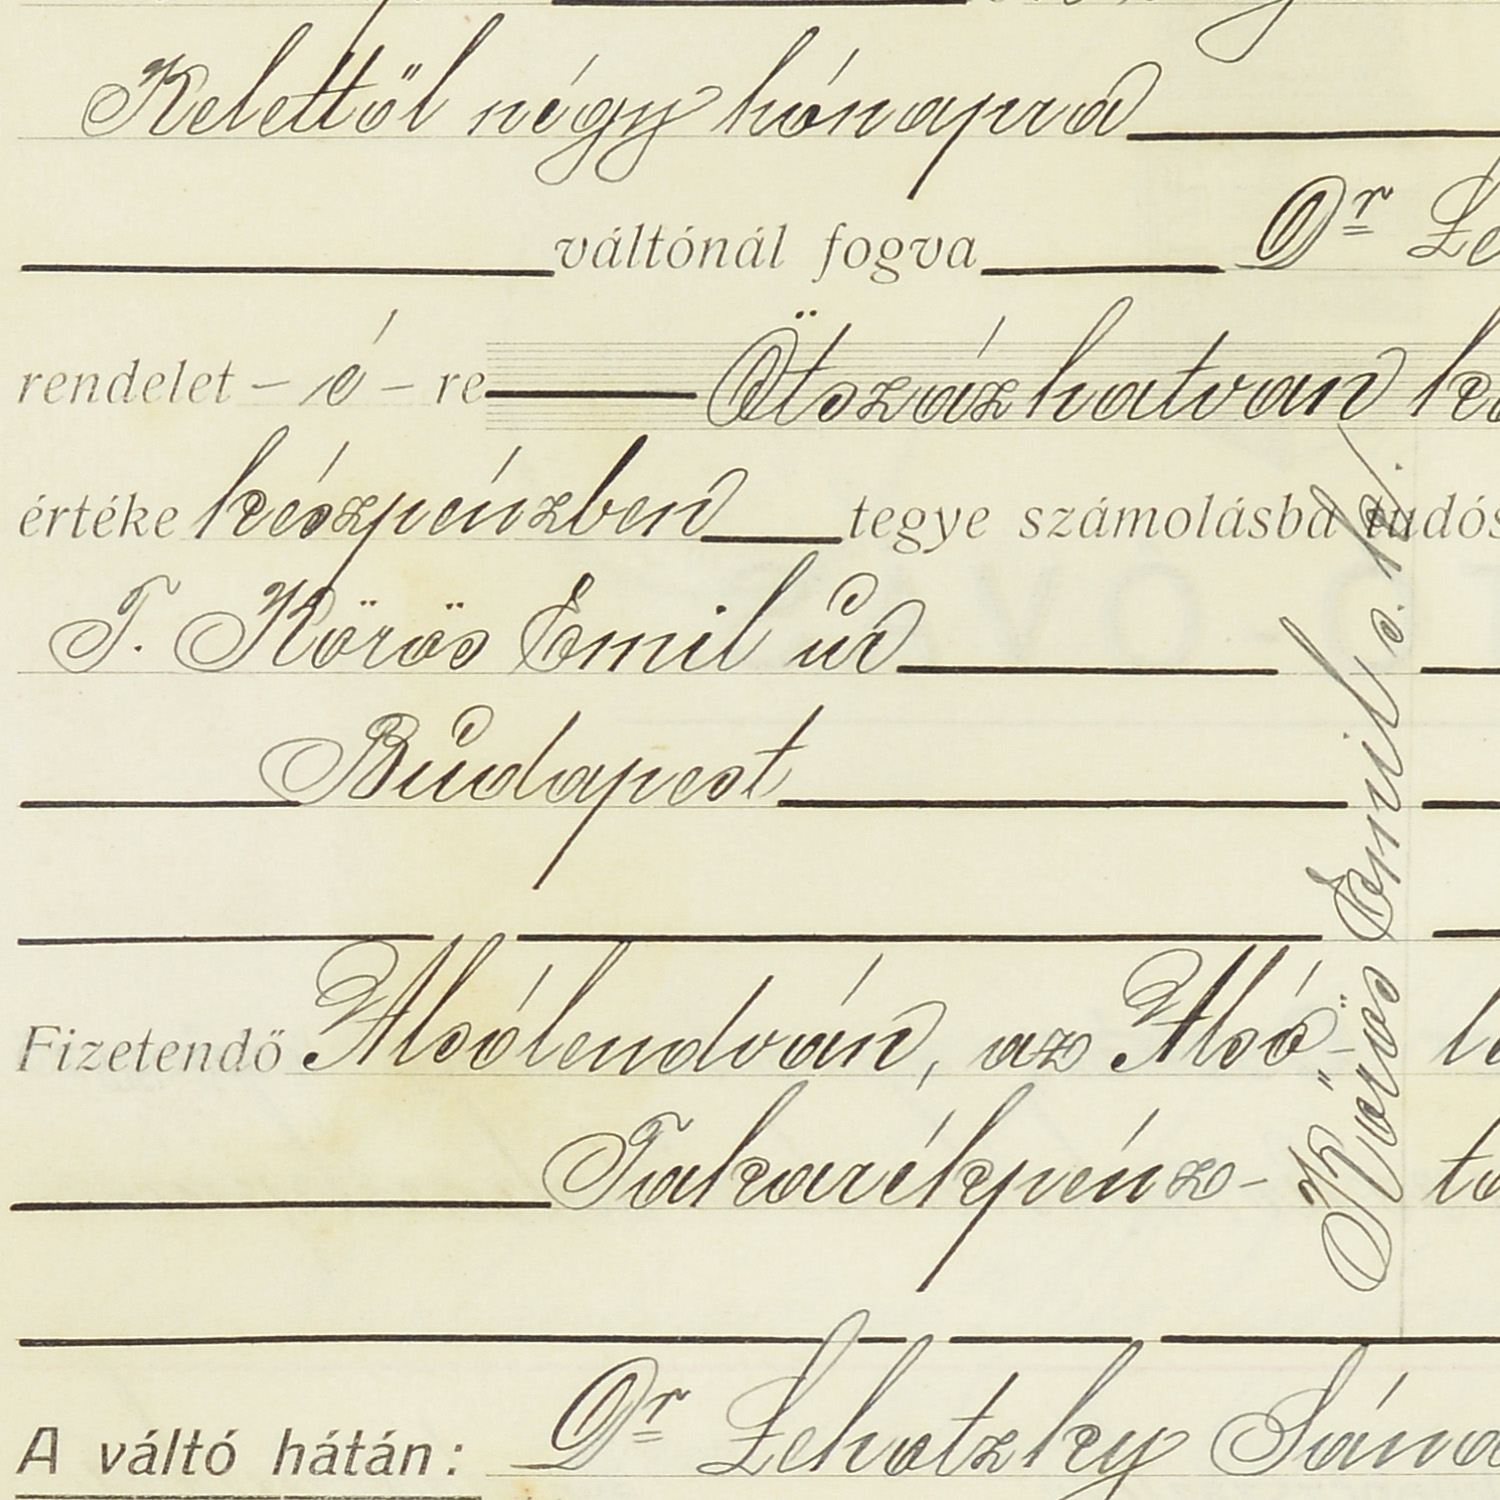 Kelettől négy hónapra
váltónál fogva Dr Le
rendelet – é – re Ötszázhatvan ko
értéke készpénzben tegye számolásba tudós
T. Körös Emil úr
Budapest
Fizetendő Alsólendván, az Alsó- le
Takarékpénz- tá
A váltó hátán: Dr Lehotzky Sándo
Körös Emil s. k.